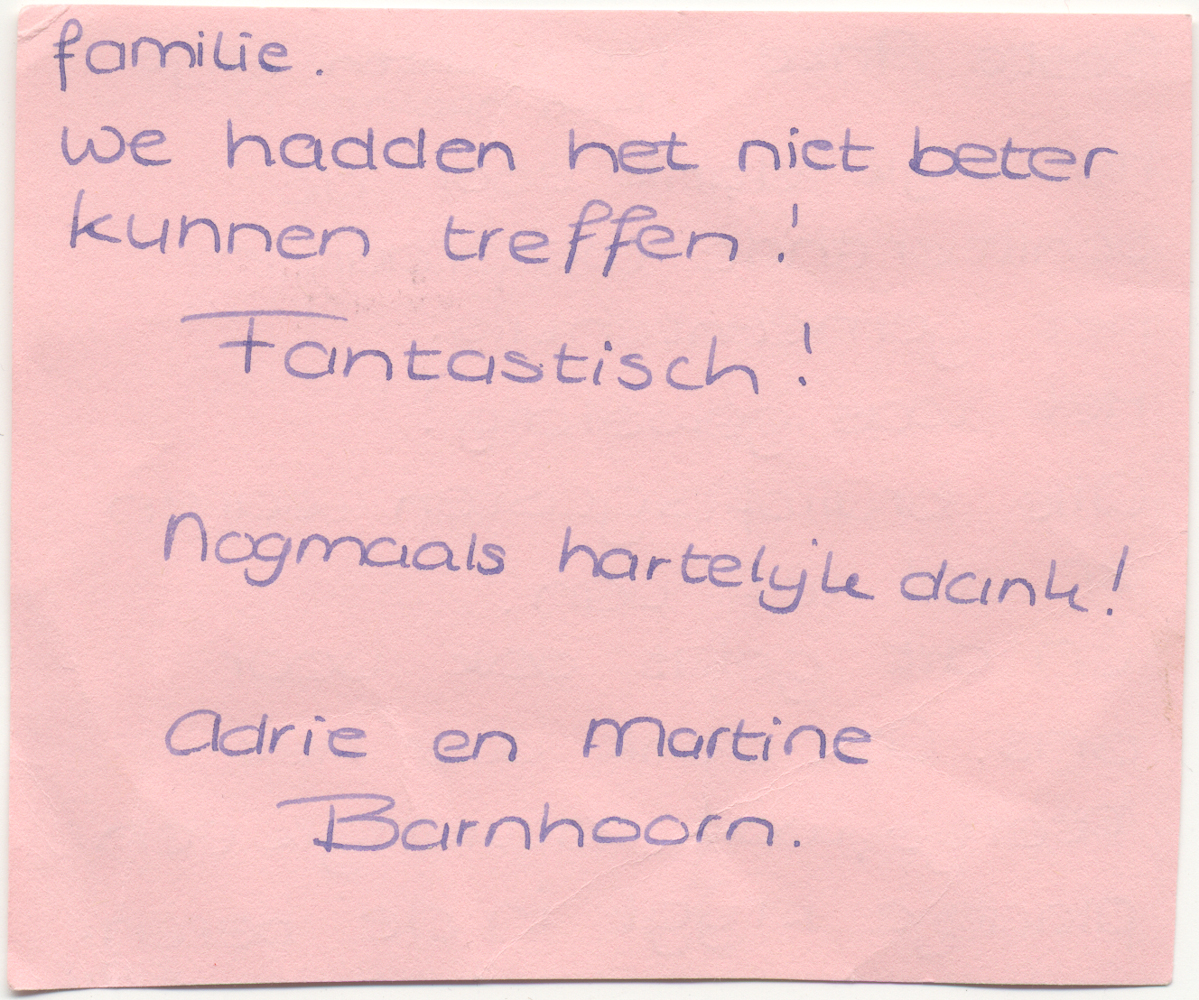 familie.
we hadden het niet beter
kunnen treffen!
Fantastisch!
Nogmaals hartelijk dank!
Adrie en Martine
Barnhoorn.